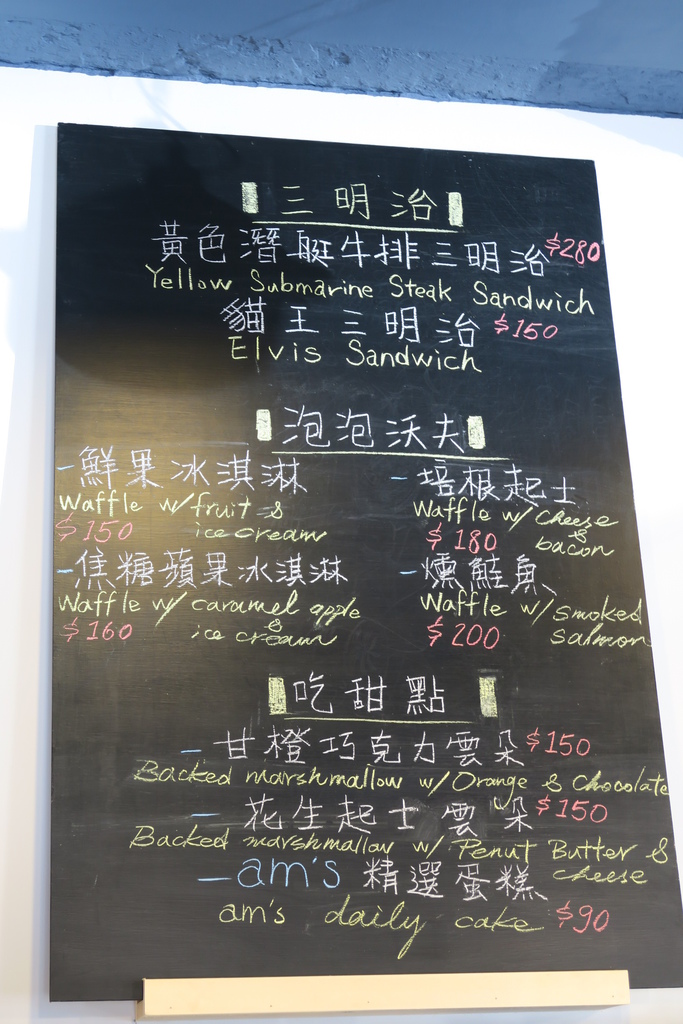 三明治
黃色潛艇牛排三明治 $280
Yellow Submarine Steak Sandwich
貓王三明治 $150
Elvis Sandwich
泡泡沃夫
-鮮果冰淇淋
Waffle w/ fruit &
$150 ice cream
-焦糖蘋果冰淇淋
Waffle w/ caramel apple
&
$160 ice cream
-培根起士
Waffle w/ cheese
&
$180 bacon
-燻鮭魚
Waffle w/ smoked
$200 salmon
吃甜點
-甘橙巧克力雲朵 $150
Backed marshmallow w/ Orange & Chocolate
-花生起士雲朵 $150
Backed marshmallow w/ Penut Butter &
cheese
-am's 精選蛋糕
am's daily cake $90